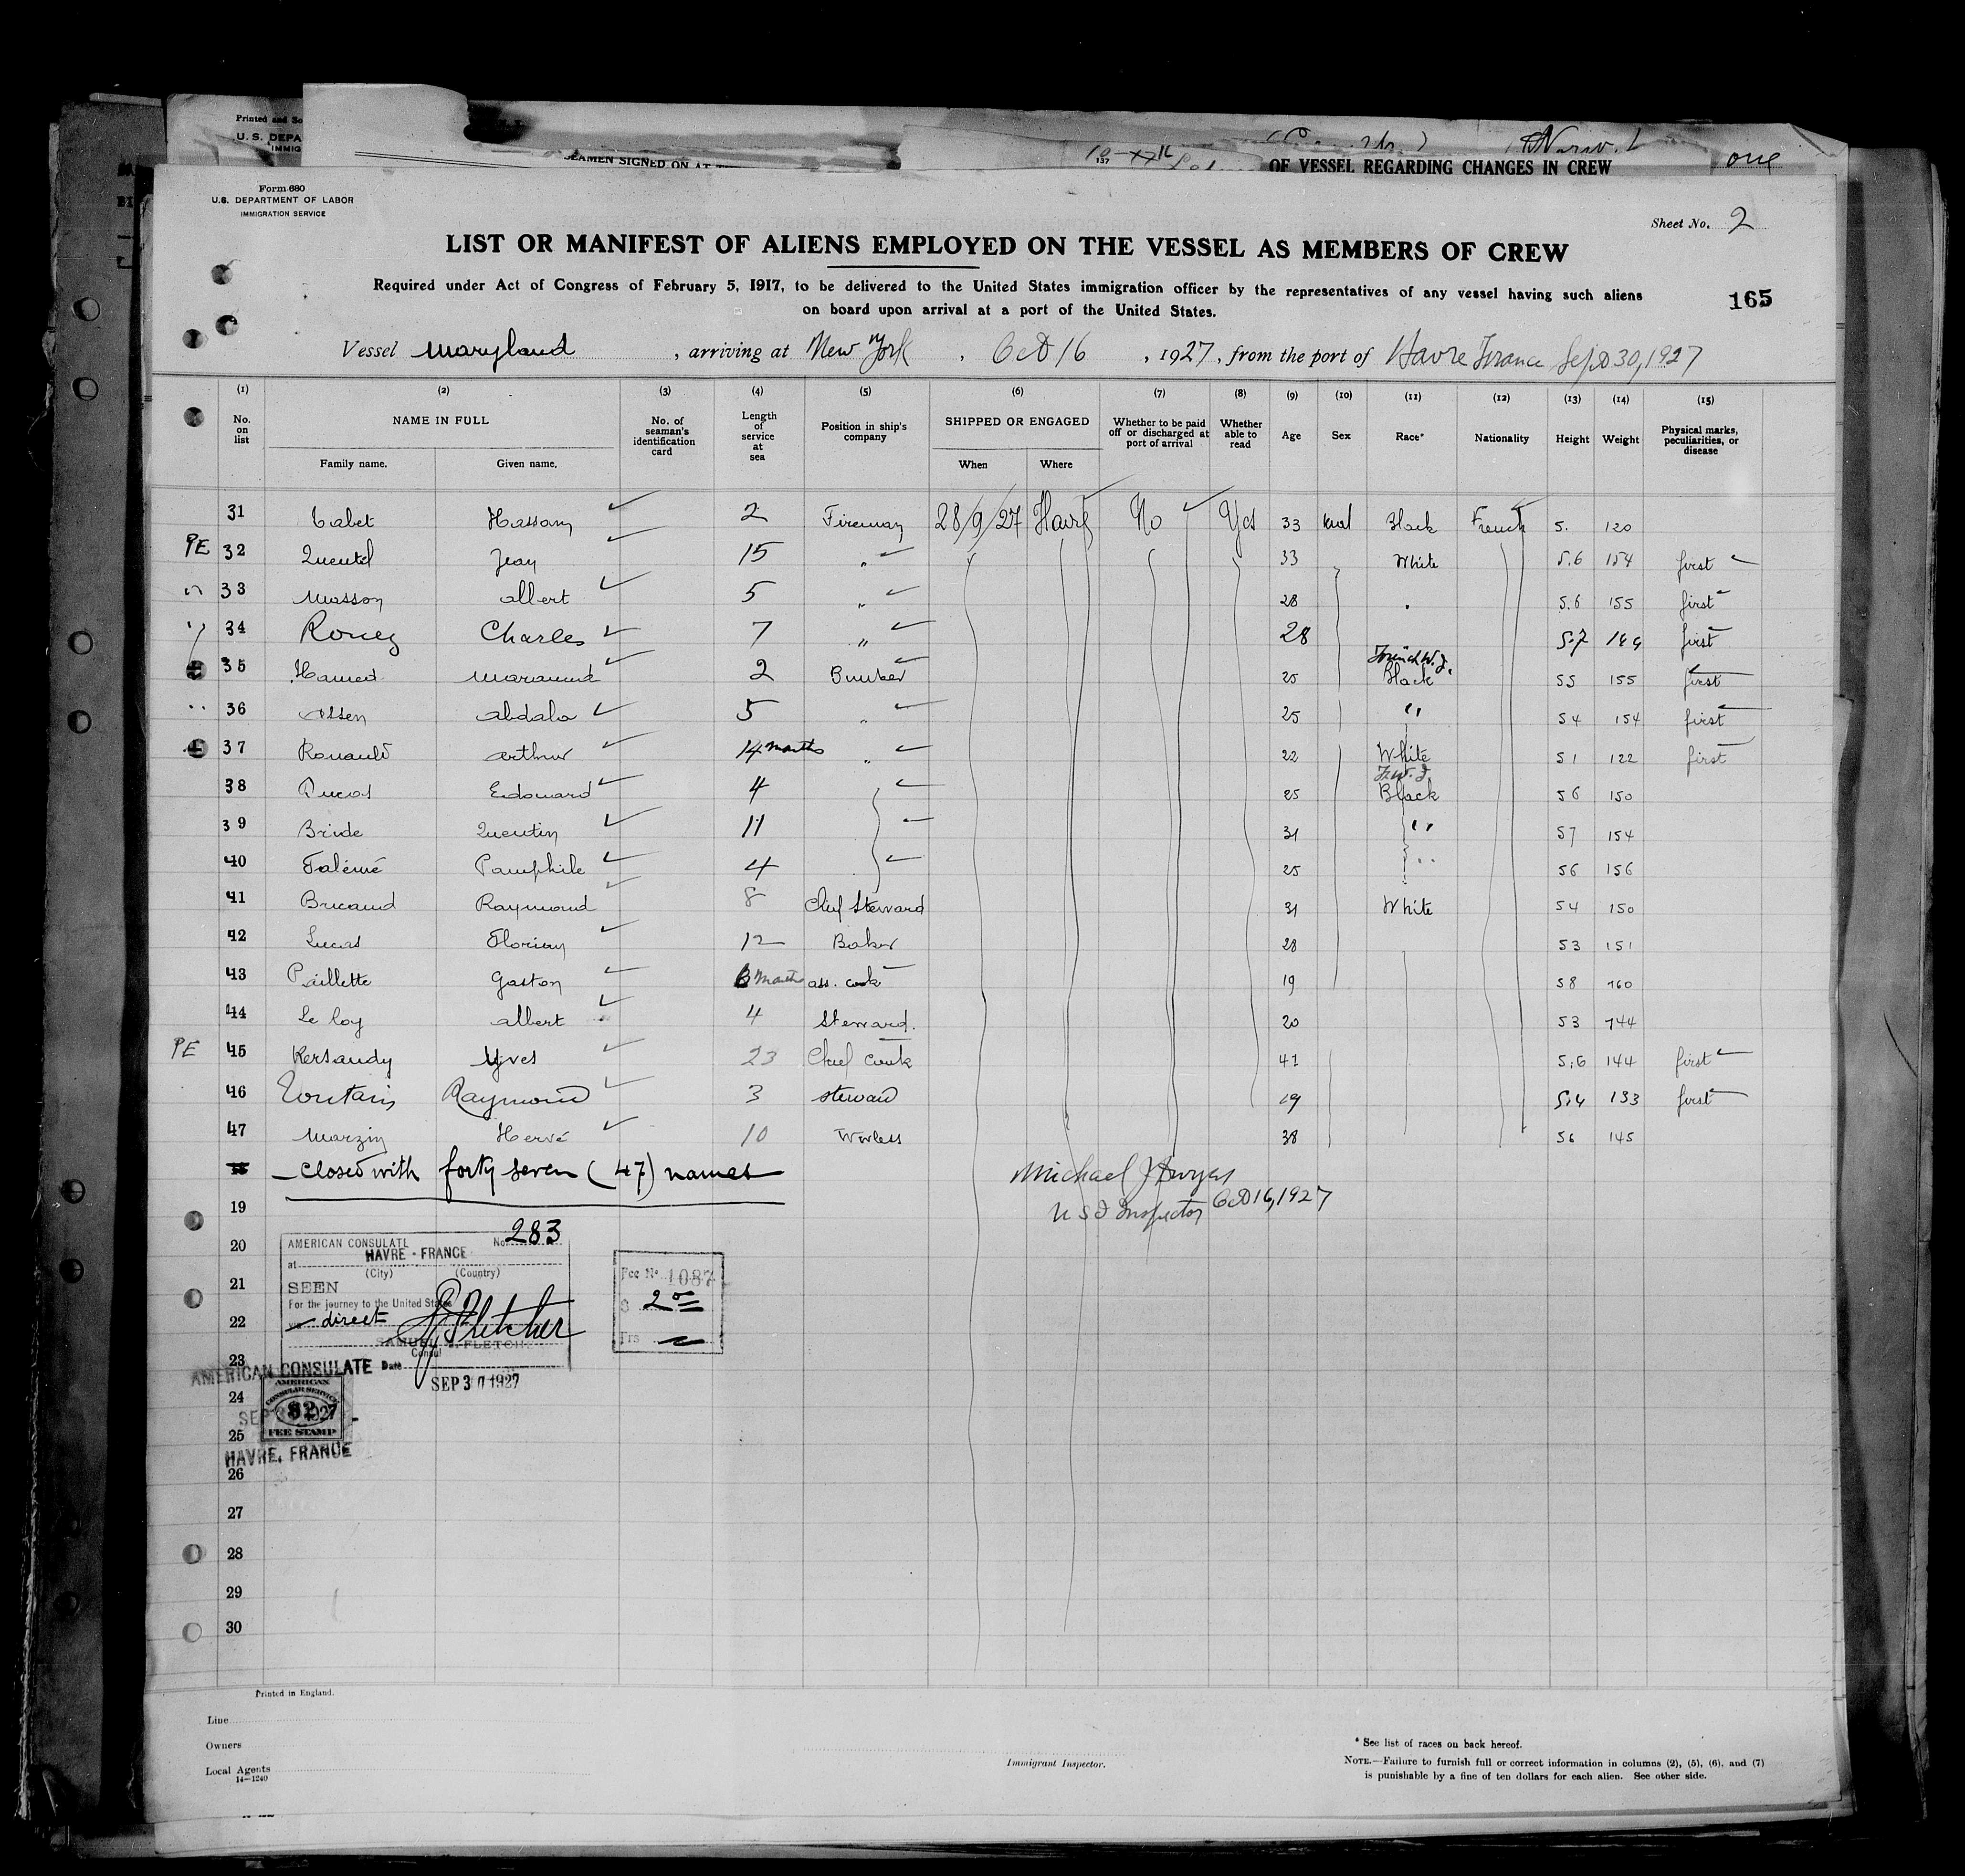 Printed and So
U. S. DEPA
IMMIG
SEAMEN SIGNED ON AT T
137
OF VESSEL REGARDING CHANGES IN CREW
one
Form 680
U.S. DEPARTMENT OF LABOR
IMMIGRATION SERVICE
Sheet No. 2
LIST OR MANIFEST OF ALIENS EMPLOYED ON THE VESSEL AS MEMBERS OF CREW
Required under Act of Congress of February 5, 1917, to be delivered to the United States immigration officer by the representatives of any vessel having such aliens
on board upon arrival at a port of the United States.
165
Vessel Maryland, arriving at New York, Oct 16, 1927, from the port of Havre France Sept 30, 1927
(1) (2) (3) (4) (5) (6) (7) (8) (9) (10) (11) (12) (13) (14) (15)
No. on list NAME IN FULL Family name. Given name. No. of seaman's identification card Length of service at sea Position in ship's company SHIPPED OR ENGAGED When Where Whether to be paid off or discharged at port of arrival Whether able to read Age Sex Race* Nationality Height Weight Physical marks, peculiarities, or disease
31 Cabet Hassan 2 Fireman 28/9/27 Havre No Yes 33 Black French 5. 120
PE 32 Quentel Jean 15 " 33 White 5.6 154 first
33 Masson Albert 5 " 28 5.6 155 first
34 Charles 7 " 28 5.7 first
35 Hamed 2 Bunker 25 French W. I. Black 55 155 first
36 Assen Abdala 5 " 25 " 54 154 first
37 Renauld Arthur 14 months " 22 White 51 122 first
38 Ducas Edouard 4 25 F.W.I. Black 56 150
39 Bride Quentin 11 31 " 57 154
40 Falémé Pamphile 4 25 " 56 156
41 Bricaud Raymond 8 Chief Steward 31 White 54 150
42 Lucas Florian 12 Baker 28 53 151
43 Paillette Gaston 6 months ass. cook 19 58 160
44 Le Roy Albert 4 Steward. 20 53 144
PE 45 Kersaudy Yves 23 Chief Cook 41 5.6 144 first
46 Raymond 3 steward 19 5.4 133 first
47 Marzin Hervé 10 Wireless 38 56 145
closed with forty seven (47) names
Michael J Dwyer
U S I Inspector Oct 16, 1927
19
20
21
22
23
24
25
26
27
28
29
30
AMERICAN CONSULATE No. 283
at HAVRE - FRANCE
(City) (Country)
SEEN
For the journey to the United States
via direct
SAMUEL FLETCH
Consul
Date SEP 30 1927
Fee No 1087
$ 2.00
Frs
AMERICAN CONSULATE
AMERICAN CONSULAR SERVICE
$2
FEE STAMP
SEP 30 1927
HAVRE, FRANCE
Printed in England.
Line
Owners
Local Agents
14—1240
Immigrant Inspector.
* See list of races on back hereof.
NOTE.—Failure to furnish full or correct information in columns (2), (5), (6), and (7)
is punishable by a fine of ten dollars for each alien. See other side.